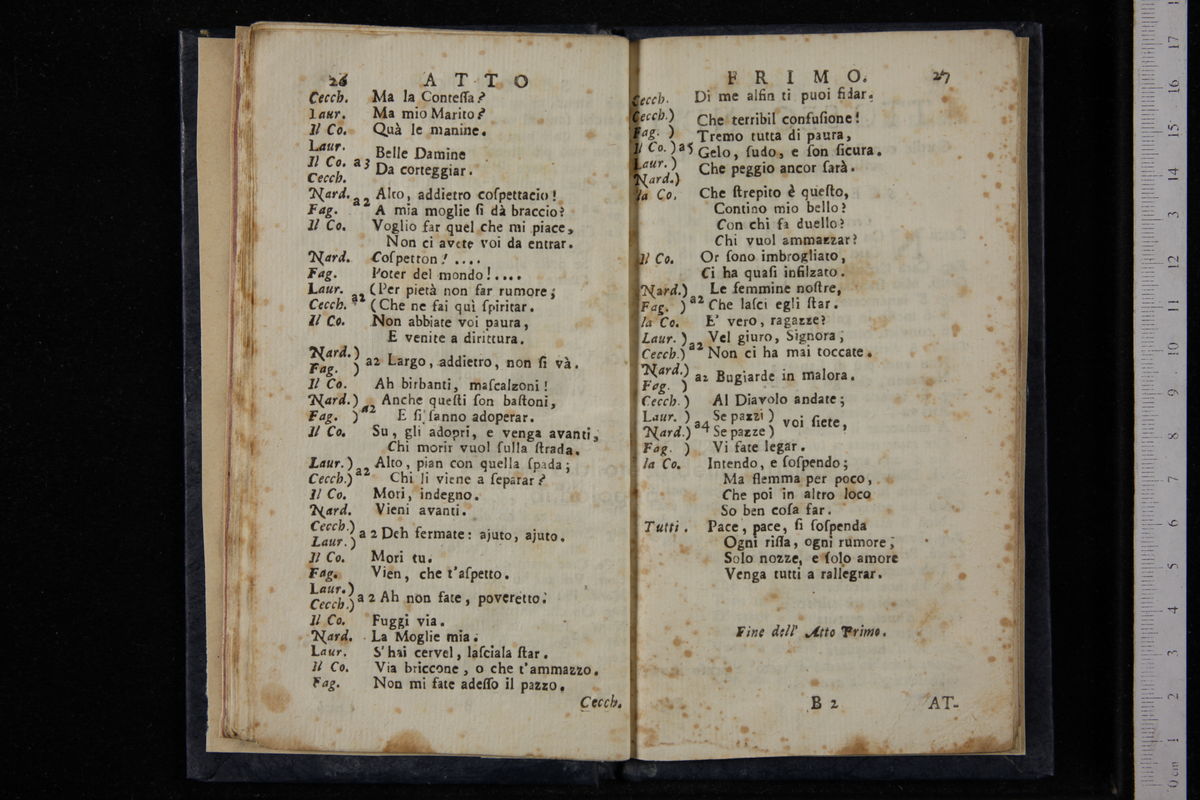 26 ATTO
Cecch. Ma la Conteſſa?
Laur. Ma mio Marito?
Il Co. Quà le manine.
Laur.
Il Co. a 3 Belle Damine
Cecch. Da corteggiar.
Nard. a 2 Alto, addietro coſpettacio!
Fag. A mia moglie ſi dà braccio?
Il Co. Voglio far quel che mi piace,
Non ci avete voi da entrar.
Nard. Coſpetton! ....
Fag. Poter del mondo! ....
Laur. a2 (Per pietà non far rumore;
Cecch. (Che ne fai quì ſpiritar.
Il Co. Non abbiate voi paura,
E venite a dirittura.
Nard.)
Fag. ) a2 Largo, addietro, non ſi và.
Il Co. Ah birbanti, maſcalzoni!
Nard.) a2 Anche queſti ſon baſtoni,
Fag. ) E ſi ſanno adoperar.
Il Co. Su, gli adopri, e venga avanti,
Chi morir vuol ſulla ſtrada.
Laur.) a2 Alto, pian con quella ſpada;
Cecch.) Chi li viene a ſeparar?
Il Co. Mori, indegno.
Nard. Vieni avanti.
Cecch.)
Laur.) a 2 Deh fermate: ajuto, ajuto.
Il Co. Mori tu.
Fag. Vien, che t'aſpetto.
Laur.)
Cecch.) a 2 Ah non fate, poveretto.
Il Co. Fuggi via.
Nard. La Moglie mia.
Laur. S'hai cervel, laſciala ſtar.
Il Co. Via briccone, o che t'ammazzo.
Fag. Non mi fate adeſſo il pazzo.
Cecch.
PRIMO. 27
Cecch. Di me alfin ti puoi fidar.
Cecch.) Che terribil confuſione!
Fag. ) Tremo tutta di paura,
Il Co. ) a5 Gelo, ſudo, e ſon ſicura.
Laur. ) Che peggio ancor ſarà.
Nard.)
la Co. Che ſtrepito è queſto,
Contino mio bello?
Con chi fa duello?
Chi vuol ammazzar?
Il Co. Or ſono imbrogliato,
Ci ha quaſi infilzato.
Nard.) a2 Le femmine noſtre,
Fag. ) Che laſci egli ſtar.
la Co. E' vero, ragazze?
Laur. ) a2 Vel giuro, Signora;
Cecch.) Non ci ha mai toccate.
Nard.)
Fag. ) a2 Bugiarde in malora.
Cecch. ) Al Diavolo andate;
Laur. ) a4 Se pazzi ) voi ſiete,
Nard.) Se pazze )
Fag. ) Vi fate legar.
la Co. Intendo, e ſoſpendo;
Ma flemma per poco,
Che poi in altro loco
So ben coſa far.
Tutti. Pace, pace, ſi ſoſpenda
Ogni riſſa, ogni rumore;
Solo nozze, e ſolo amore
Venga tutti a rallegrar.
Fine dell' Atto Primo.
B 2 AT-
0 cm 1 2 3 4 5 6 7 8 9 10 11 12 3 14 15 16 17